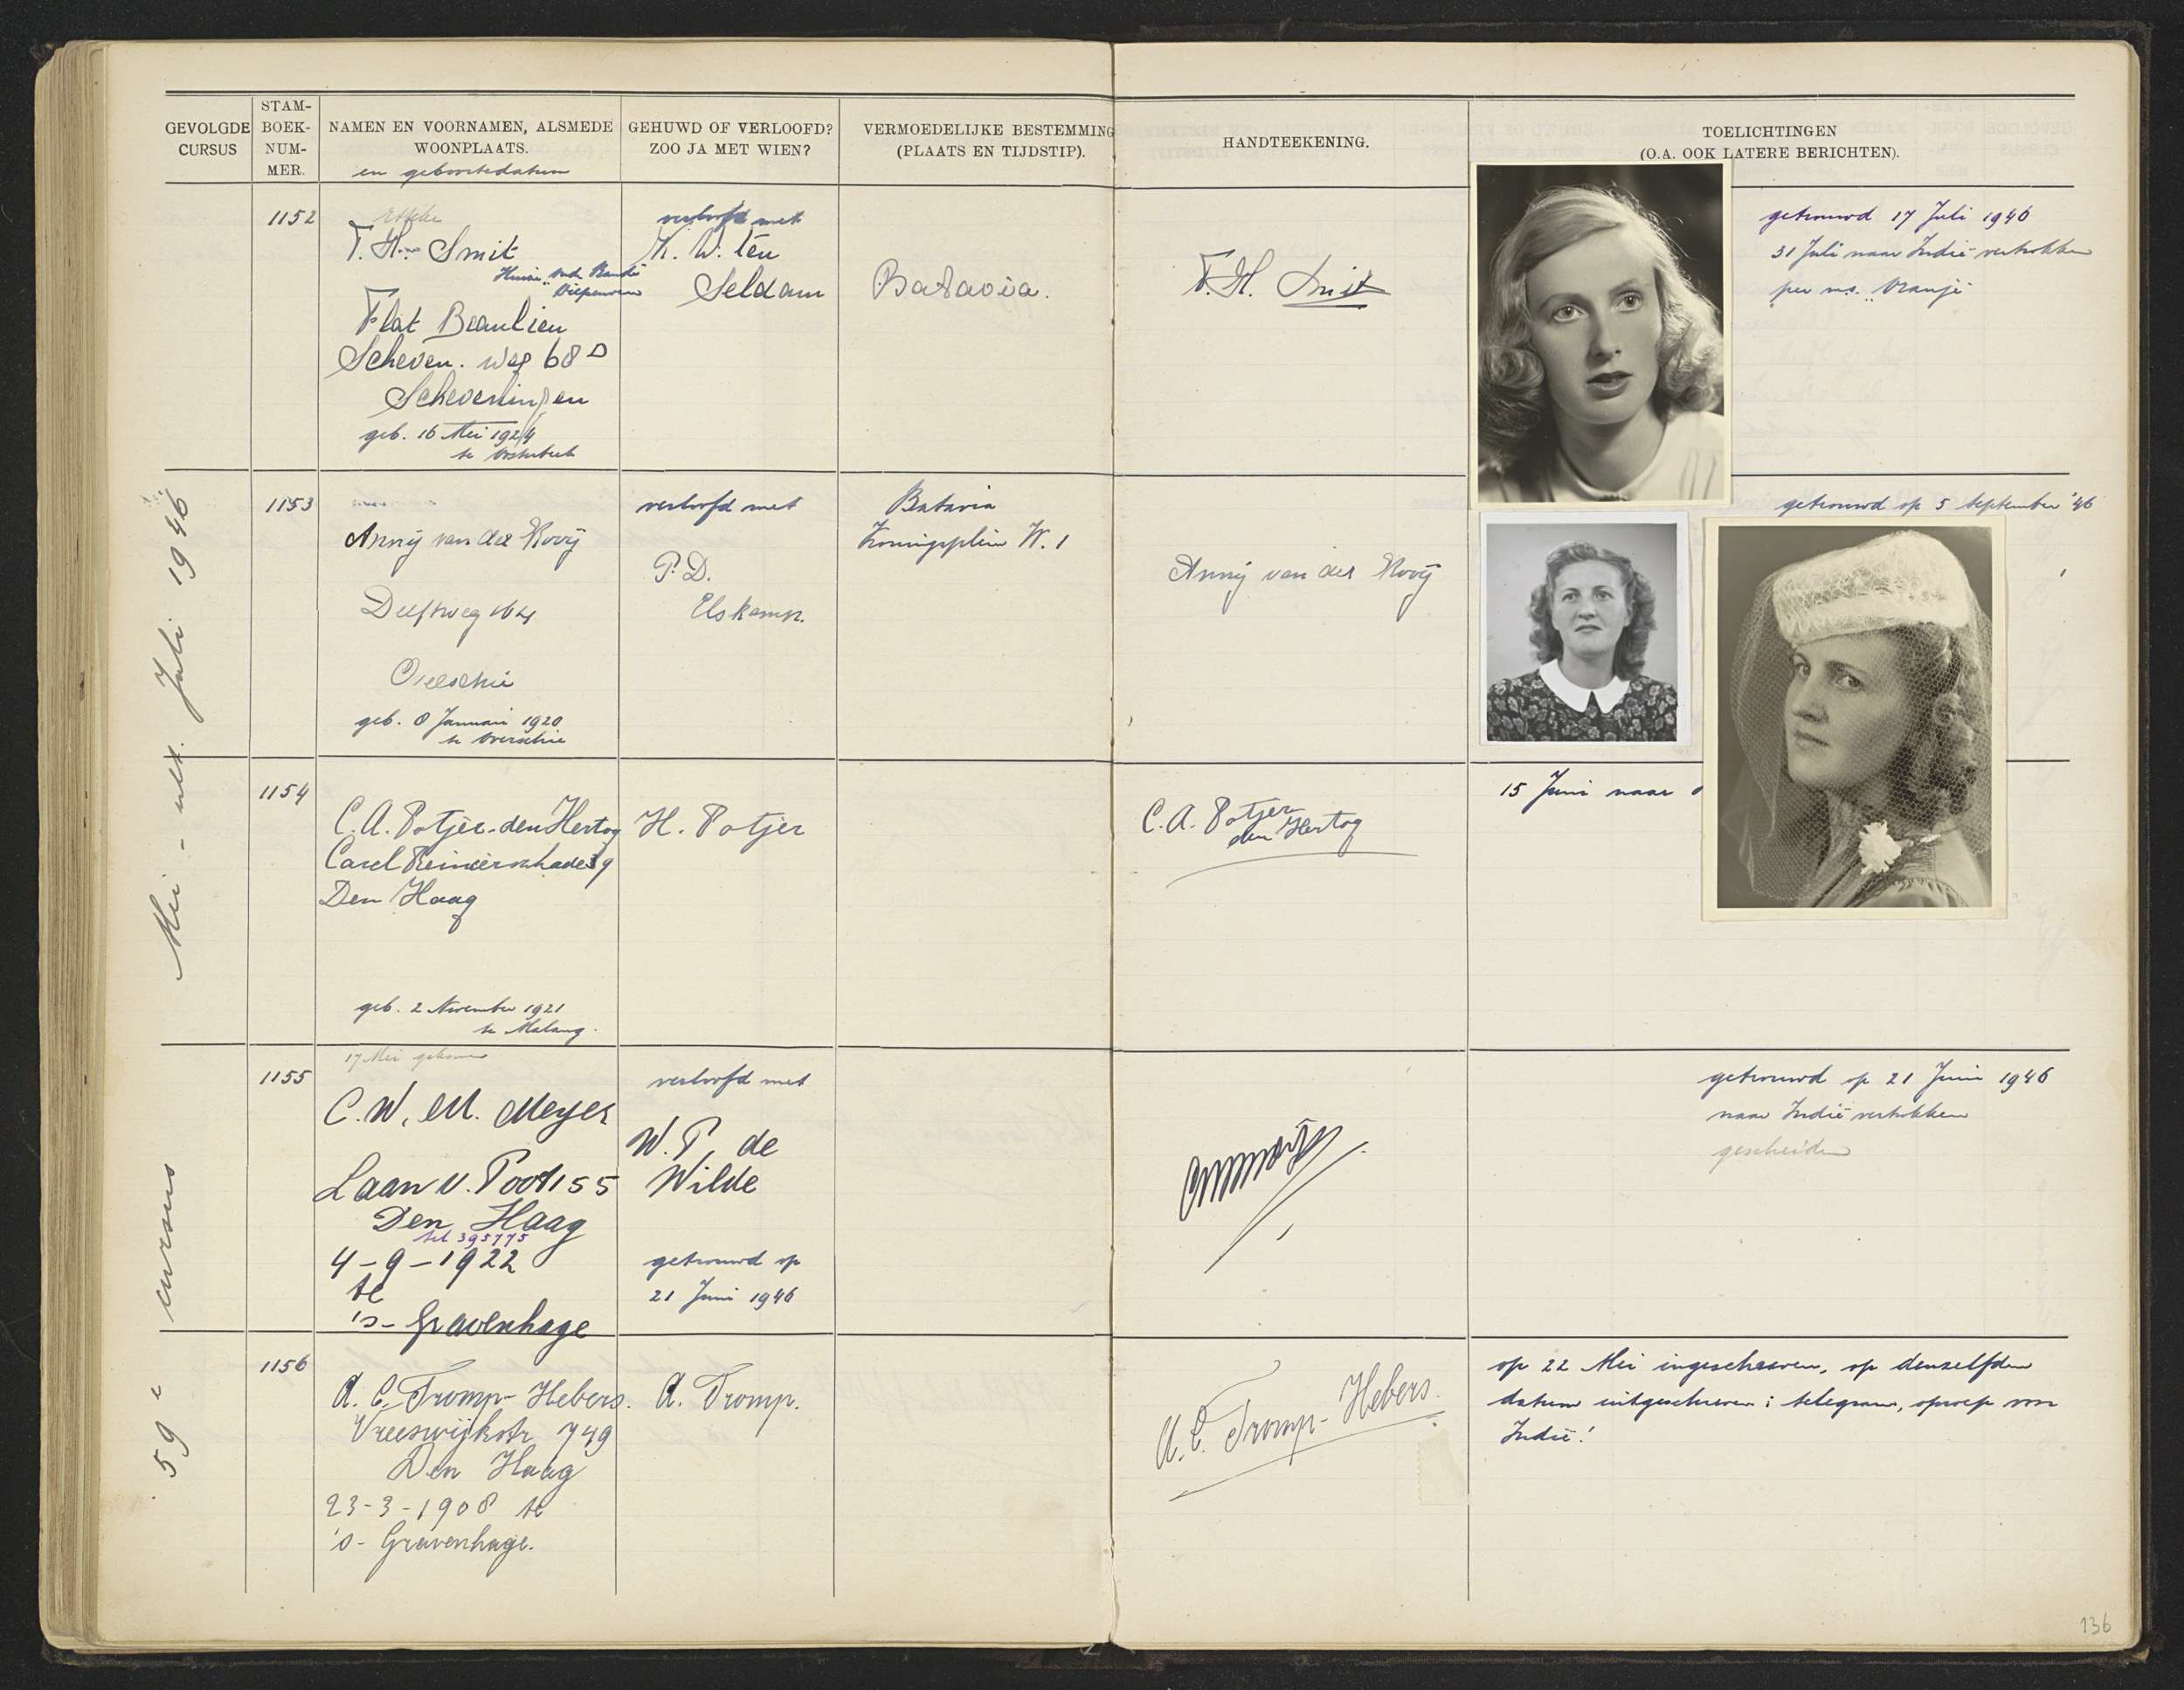 GEVOLGDE CURSUS
STAM-BOEK-NUM-MER.
NAMEN EN VOORNAMEN, ALSMEDE WOONPLAATS.
en geboortedatum
GEHUWD OF VERLOOFD? ZOO JA MET WIEN?
VERMOEDELIJKE BESTEMMING (PLAATS EN TIJDSTIP).
HANDTEEKENING.
TOELICHTINGEN (O.A. OOK LATERE BERICHTEN).
59e cursus Mei - ult. Juli 1946
1152
T. H. Smit
Flat Beaulieu
Scheven. weg 68 D
Scheveningen
geb. 16 Mei 1924
te Oosterbeek
verloofd met
K. W. ten
Seldam
Batavia.
T. H. Smit
getrouwd 17 Juli 1946
31 Juli naar Indië vertrokken
per ms. Oranje
1153
Anny van der Rooy
Delftweg 164
Overschie
geb. 8 Januari 1920
te Overschie
verloofd met
P. D.
Elskamp.
Batavia
Koningsplein W. 1
Anny van der Rooy
getrouwd op 5 September '46
1154
C. A. Potjer-den Hertog
Carel Reinierszkade 39
Den Haag
geb. 2 November 1921
te Malang.
H. Potjer
C. A. Potjer
den Hertog
15 Juni naar
1155
17 Mei gekomen
C. W. M. Meyer
Laan v. Poot 155
Den Haag
tel 395775
4-9-1922
te
's-Gravenhage
verloofd met
W. P. de
Wilde
getrouwd op
21 Juni 1946
getrouwd op 21 Juni 1946
naar Indië vertrokken
gescheiden
1156
A. C. Tromp-Hebers.
Vreeswijkstr 749
Den Haag
23-3-1908 te
's-Gravenhage.
A. Tromp.
A. C. Tromp-Hebers.
op 22 Mei ingeschreven, op denzelfden
datum uitgeschreven: telegram, oproep voor
Indië!
136